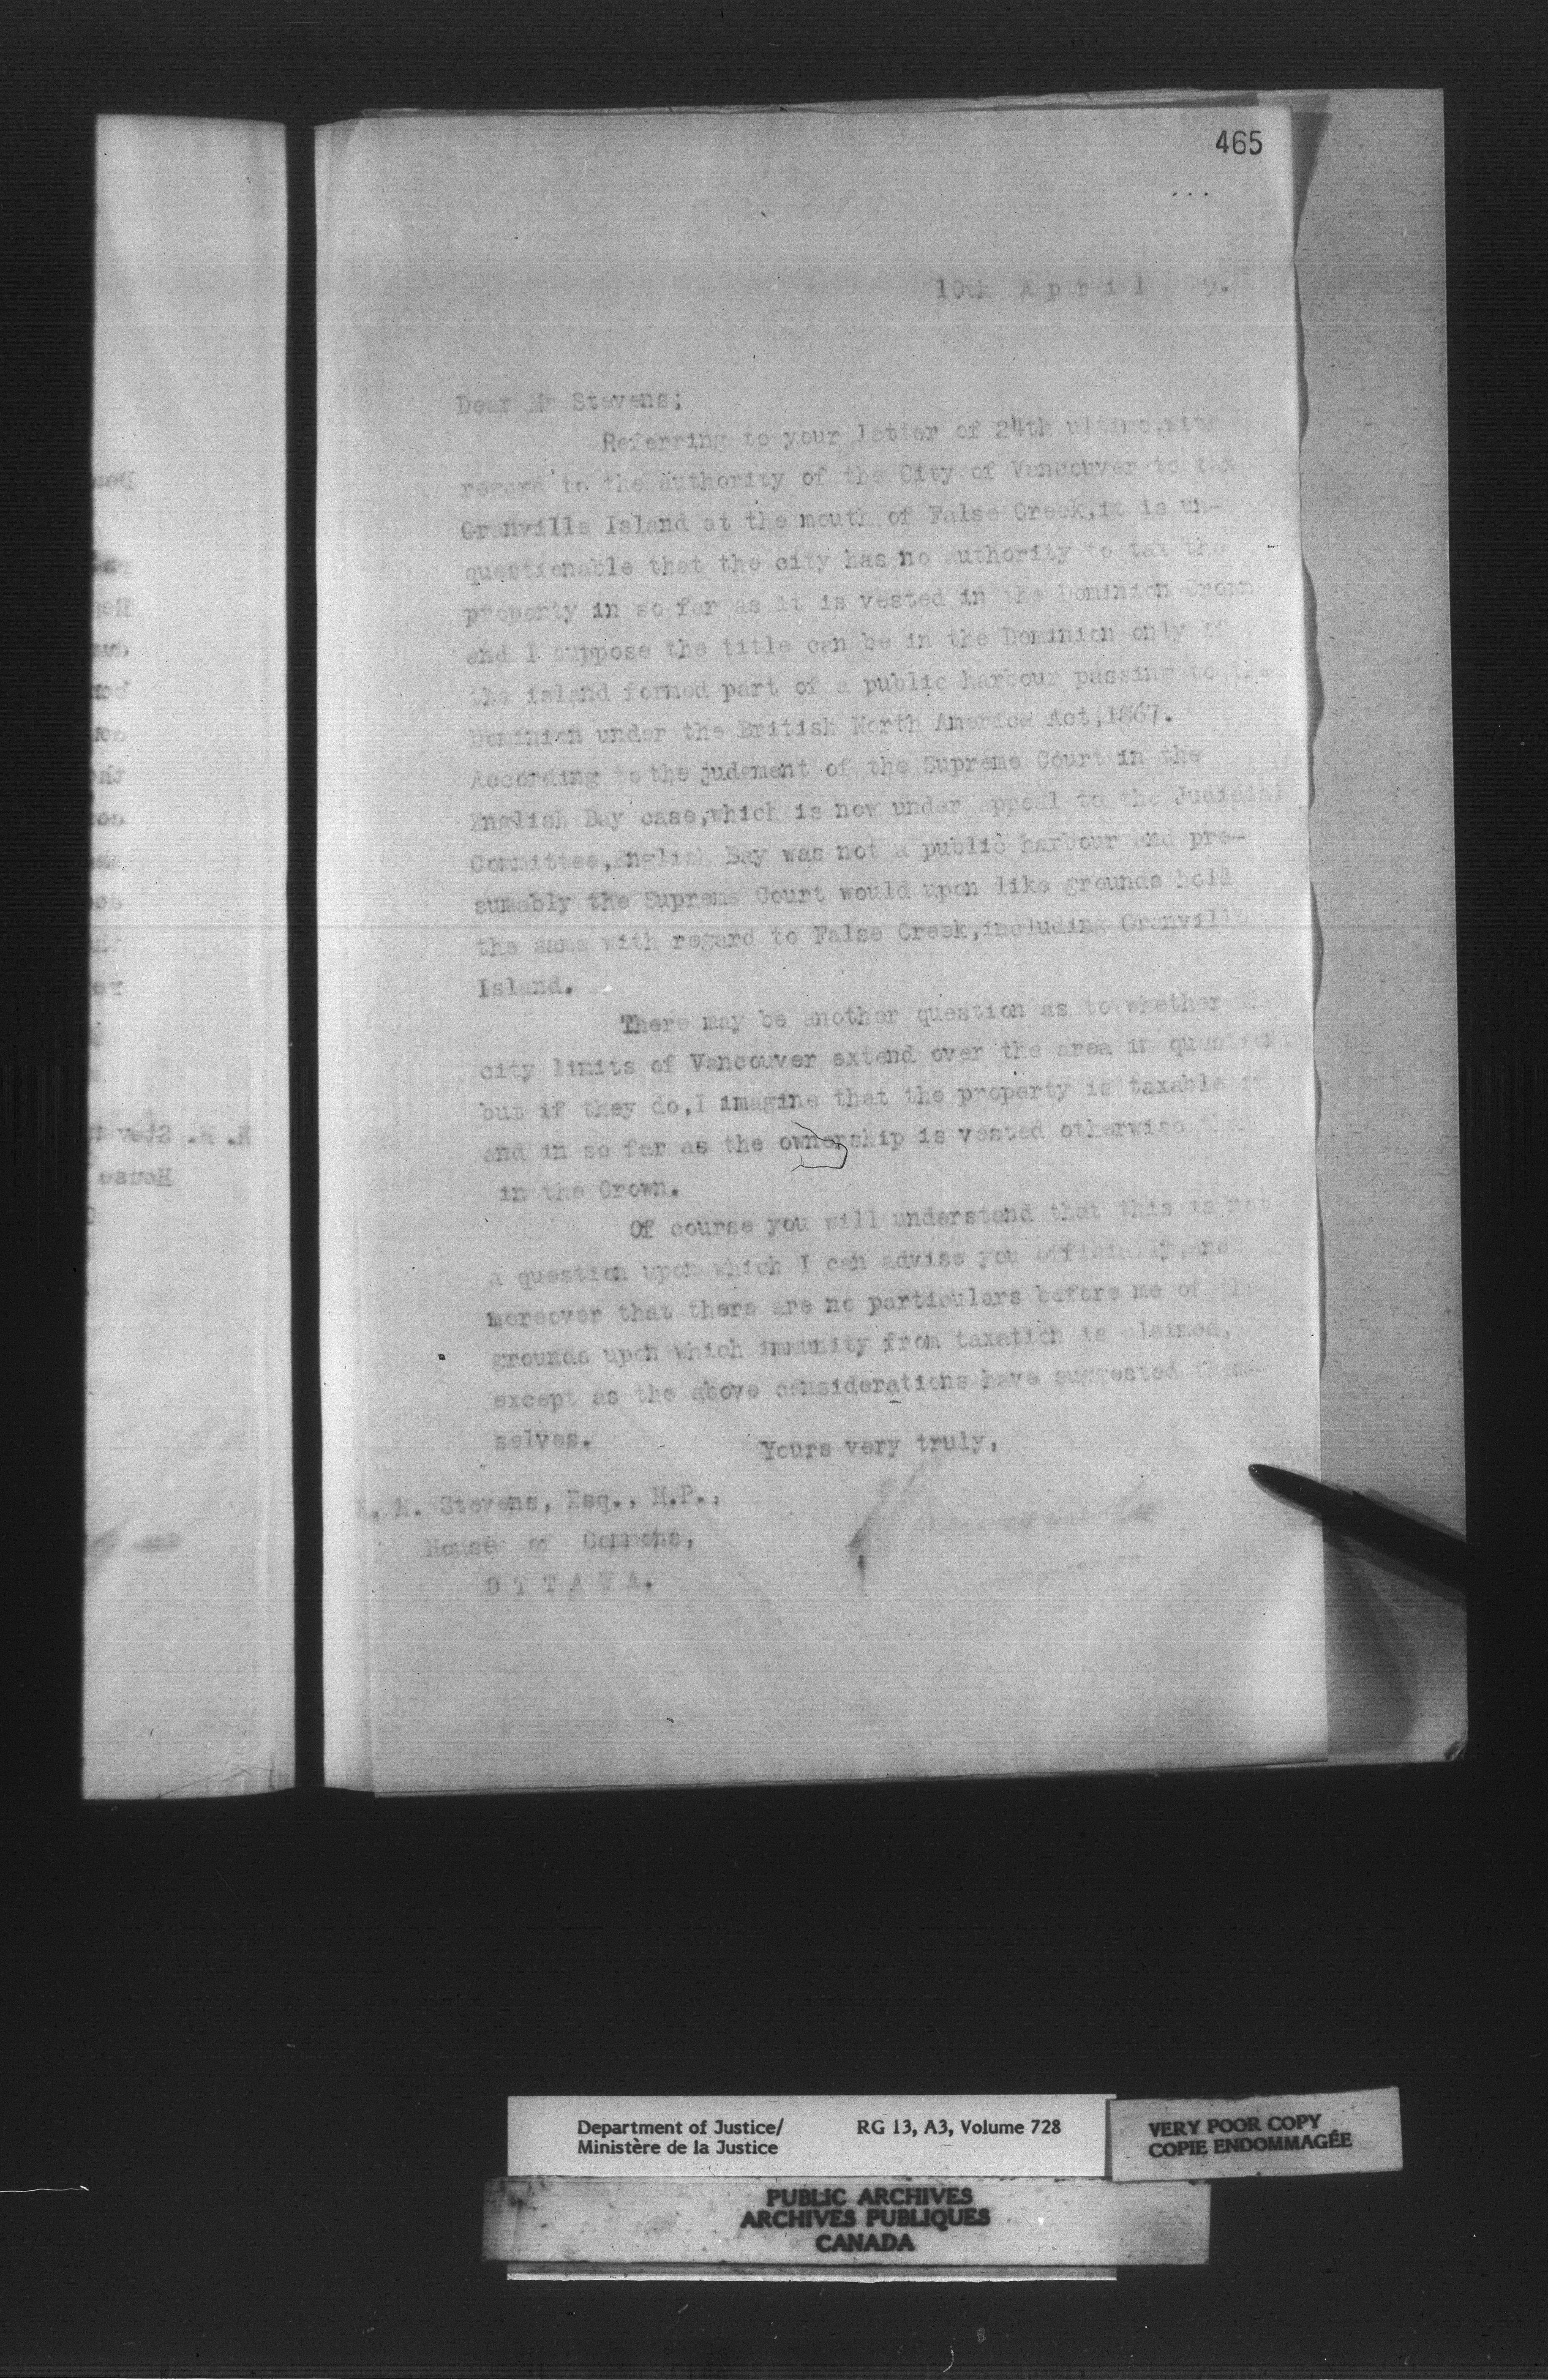 465
10th April 9.
Dear Mr Stevens;
Referring to your letter of 24th ultimo, with
regard to the authority of the City of Vancouver to tax
Granville Island at the mouth of False Creek,it is un-
questionable that the city has no authority to tax the
property in so far as it is vested in the Dominion Crown
and I suppose the title can be in the Dominion only if
the island formed part of a public harbour passing to the
Dominion under the British North America Act,1867.
According to the judgment of the Supreme Court in the
English Bay case,which is now under appeal to the Judicial
Committee,English Bay was not a public harbour and pre-
sumably the Supreme Court would upon like grounds hold
the same with regard to False Creek,including Granville
Island.
There may be another question as to whether the
city limits of Vancouver extend over the area in question,
but if they do,I imagine that the property is taxable if
and in so far as the ownership is vested otherwise than
in the Crown.
Of course you will understand that this is not
a question upon which I can advise you officially,and
moreover that there are no particulars before me of the
grounds upon which immunity from taxation is claimed,
except as the above considerations have suggested them-
selves.
Yours very truly,
H. Stevens, Esq., M.P.,
House of Commons,
OTTAWA.
Department of Justice/
Ministère de la Justice
RG 13, A3, Volume 728
VERY POOR COPY
COPIE ENDOMMAGÉE
PUBLIC ARCHIVES
ARCHIVES PUBLIQUES
CANADA